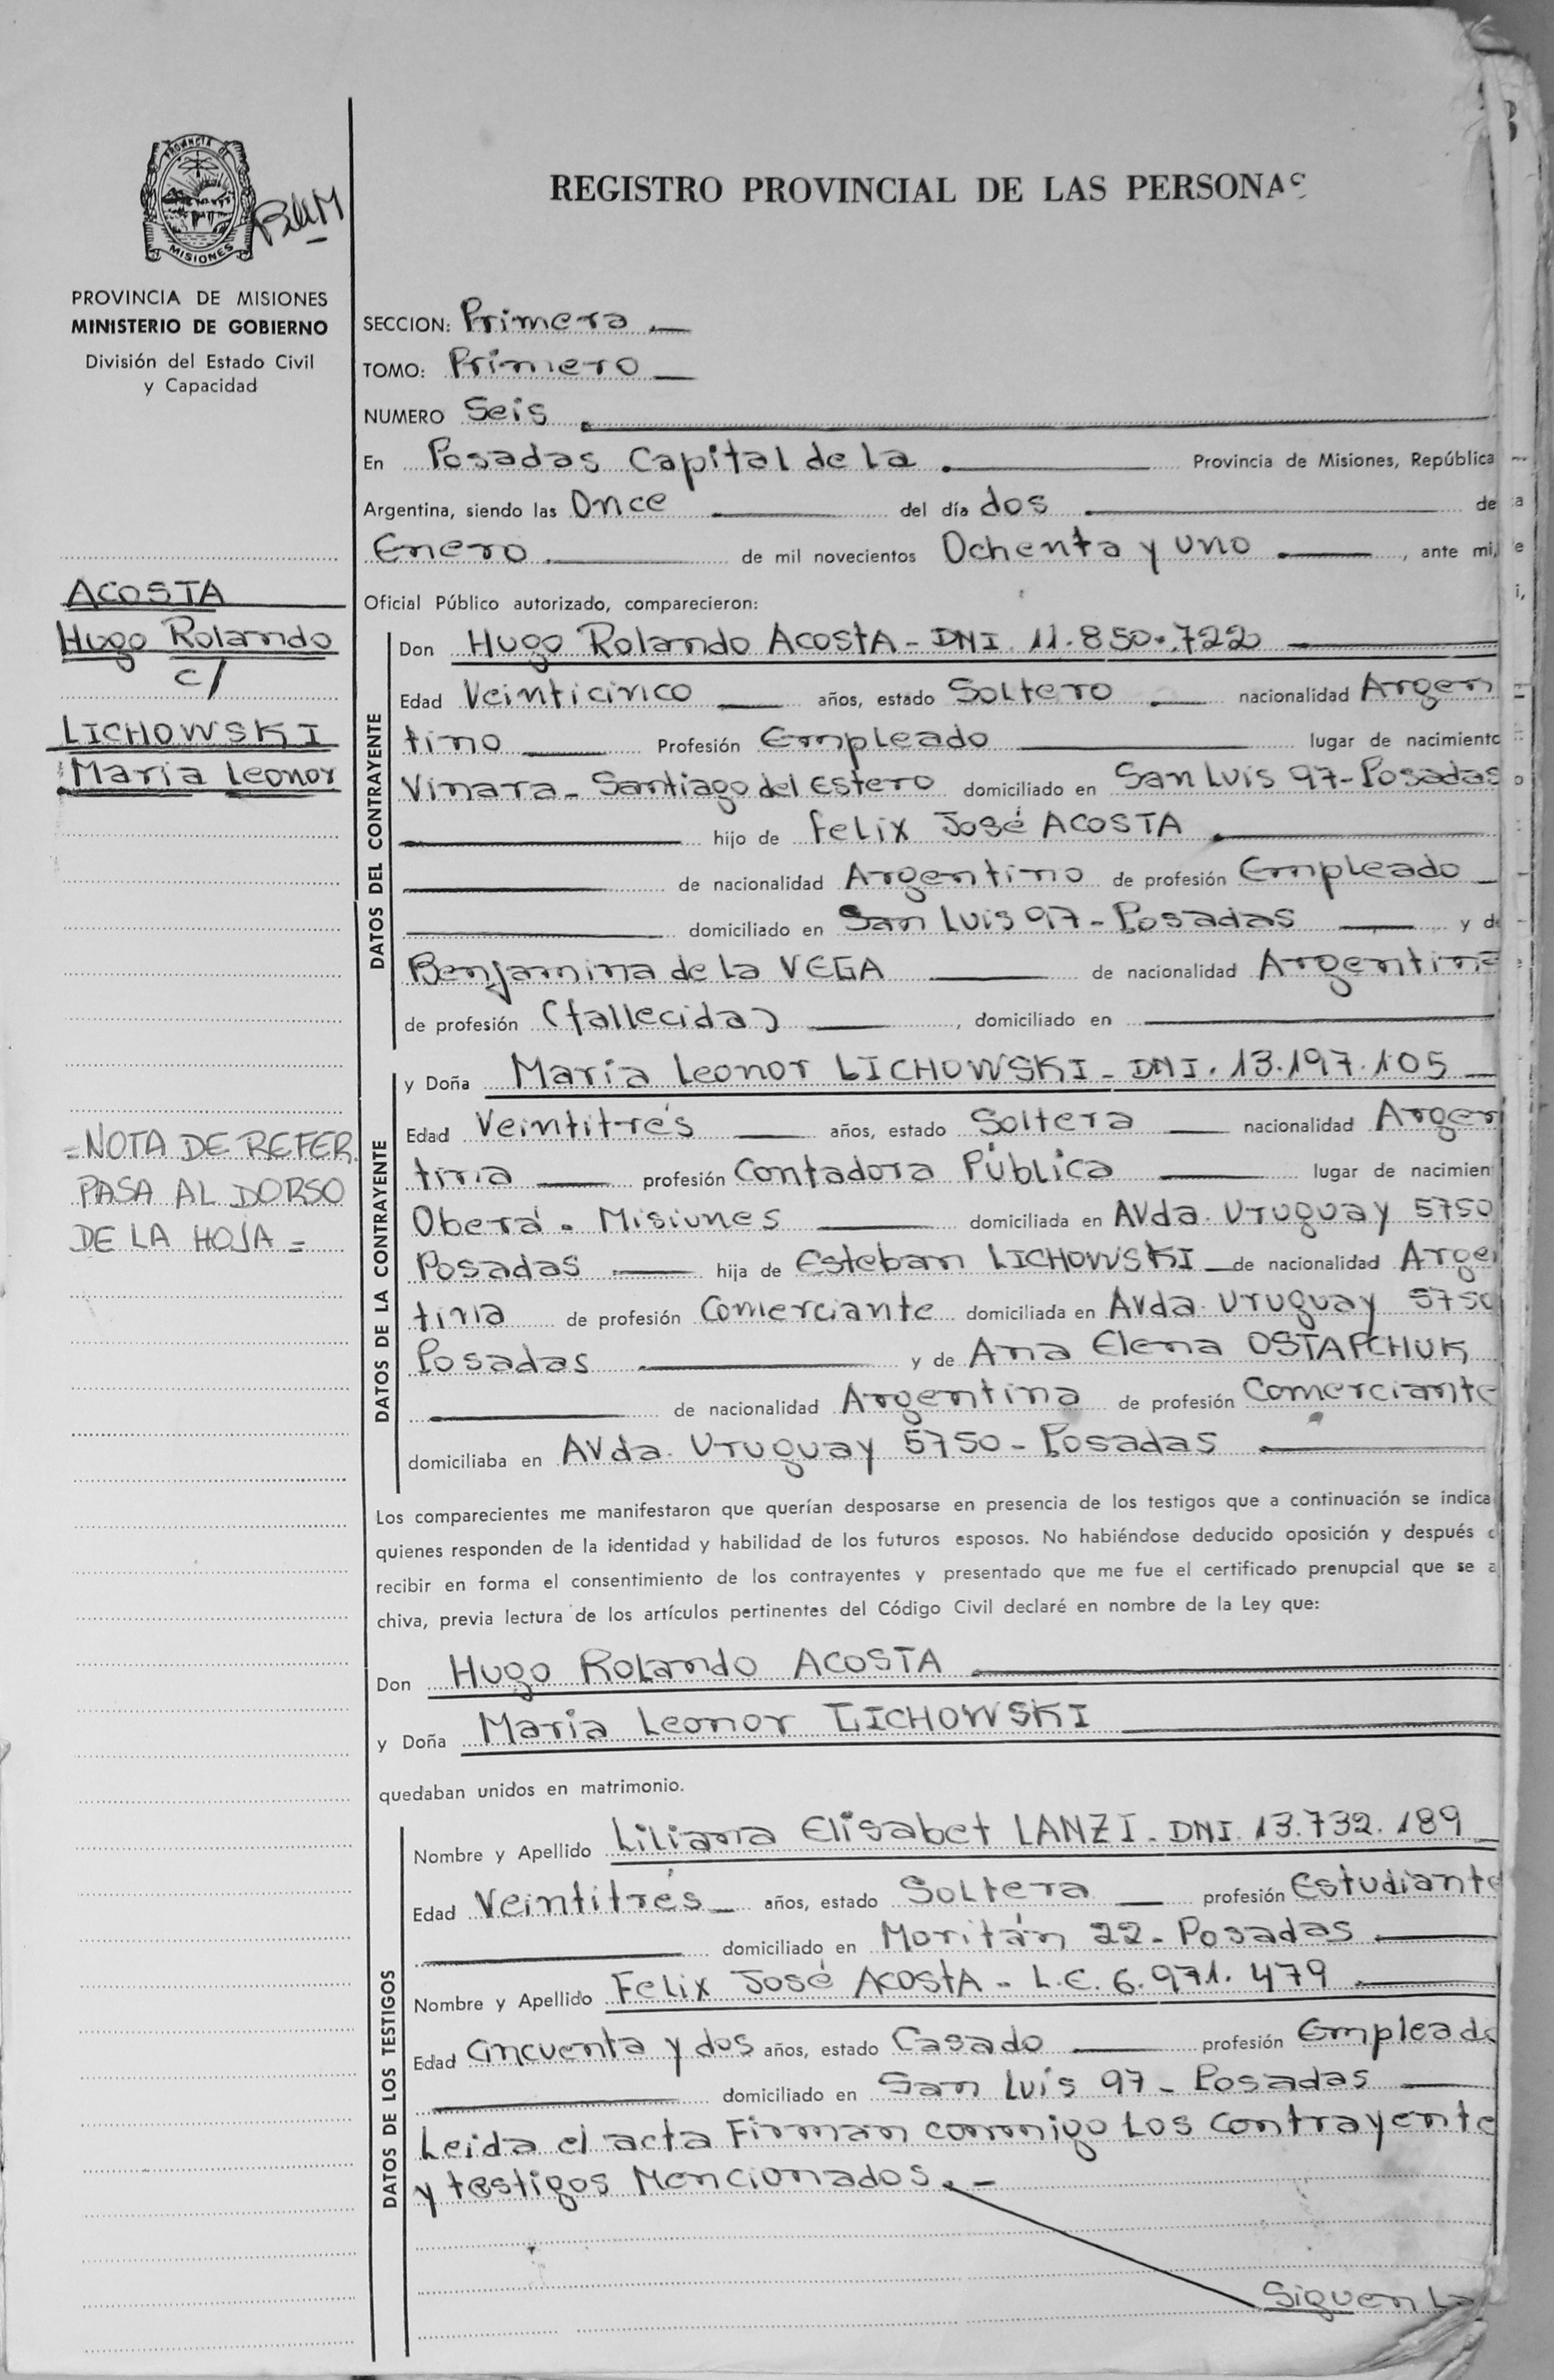 PROVINCIA DE
MISIONES
PROVINCIA DE MISIONES
MINISTERIO DE GOBIERNO
División del Estado Civil
y Capacidad
ACOSTA
Hugo Rolando
c/
LICHOWSKI
Maria Leonor
=NOTA DE REFER.
PASA AL DORSO
DE LA HOJA=
REGISTRO PROVINCIAL DE LAS PERSONAS
SECCION: Primera
TOMO: Primero
NUMERO Seis
En Posadas Capital de la Provincia de Misiones, República
Argentina, siendo las Once del día dos de
Enero de mil novecientos Ochenta y uno, ante mi,
Oficial Público autorizado, comparecieron:
DATOS DEL CONTRAYENTE
Don Hugo Rolando ACOSTA - DNI. 11.850.722
Edad Veinticinco años, estado Soltero nacionalidad Argen
tino Profesión Empleado lugar de nacimiento
Vinara - Santiago del Estero domiciliado en San Luis 97 - Posadas
hijo de Felix José ACOSTA
de nacionalidad Argentino de profesión Empleado
domiciliado en San Luis 97 - Posadas y de
Benjamina de la VEGA de nacionalidad Argentina
de profesión (fallecida), domiciliado en
DATOS DE LA CONTRAYENTE
y Doña Maria Leonor LICHOWSKI - DNI. 13.197.105
Edad Veintitrés años, estado Soltera nacionalidad Argen
tina profesión Contadora Pública lugar de nacimien
Oberá - Misiones domiciliada en Avda. Uruguay 5750
Posadas hija de Esteban LICHOWSKI de nacionalidad Argen
tina de profesión Comerciante domiciliada en Avda. Uruguay 5750
Posadas y de Ana Elena OSTAPCHUK
de nacionalidad Argentina de profesión Comerciante
domiciliaba en Avda. Uruguay 5750 - Posadas
Los comparecientes me manifestaron que querían desposarse en presencia de los testigos que a continuación se indica
quienes responden de la identidad y habilidad de los futuros esposos. No habiéndose deducido oposición y después d
recibir en forma el consentimiento de los contrayentes y presentado que me fue el certificado prenupcial que se a
chiva, previa lectura de los artículos pertinentes del Código Civil declaré en nombre de la Ley que:
Don Hugo Rolando ACOSTA
y Doña Maria Leonor LICHOWSKI
quedaban unidos en matrimonio.
DATOS DE LOS TESTIGOS
Nombre y Apellido Liliana Elisabet LANZI - DNI. 13.732.189
Edad Veintitrés años, estado Soltera profesión Estudiante
domiciliado en Moritán 22 - Posadas
Nombre y Apellido Felix José ACOSTA - L.E. 6.971.479
Edad Cincuenta y dos años, estado Casado profesión Empleado
domiciliado en San Luis 97 - Posadas
Leida el acta Firman conmigo los contrayente
y testigos Mencionados. -
Siguen La